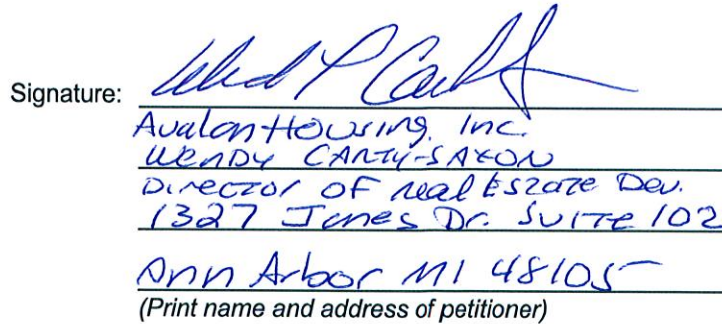 Signature:
Avalon Housing, Inc.
Wendy Carty-Saxon
Director of Real Estate Dev.
1327 Jones Dr. Suite 102
Ann Arbor MI 48105
(Print name and address of petitioner)